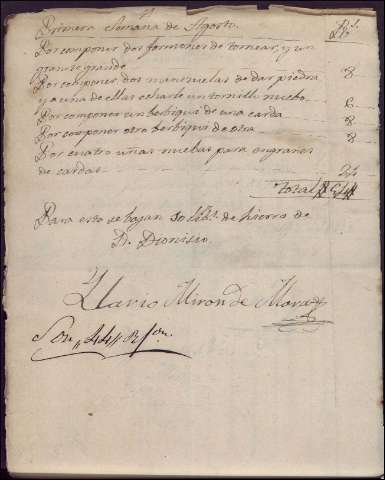 Primera Semana de Agosto. Rs.
Por componer dos formones de tornear, y un
grande 8
Por componer dos manezuelas de dar piedra
y a una de ellas echarle un tornillo nuebo 6
Por componer un berbiqui de una carda 8
Por componer otro berbiqui de otra 8
Por cuatro uñas nuebas para engranes
de cardas
Total
Para esto se bajan 50 lib.s de hierro de
D. Dionisio.
Miron de Mora
Son 44 Rs